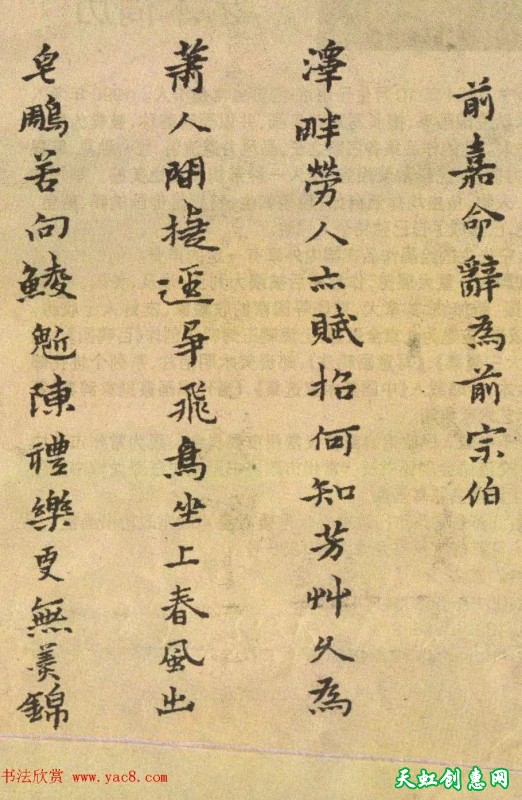 前嘉命辭為前宗伯
澤畔勞人亦賦招何知芳艸久為
蕭人間捷逕爭飛鳥坐上春風出
皂鵰若向鯪魁陳禮樂更無羙錦
书法欣赏 www.yac8.com
天虹创惠网